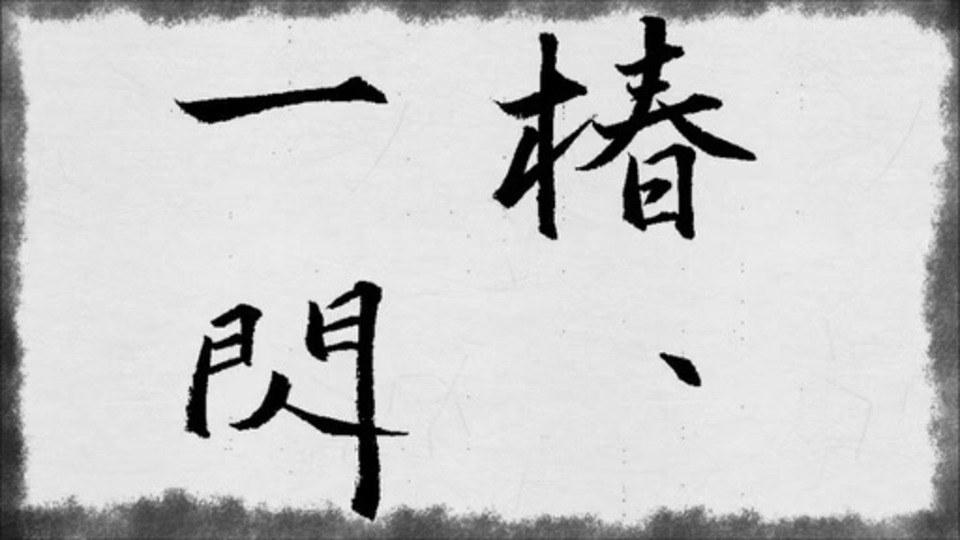 椿、
一閃